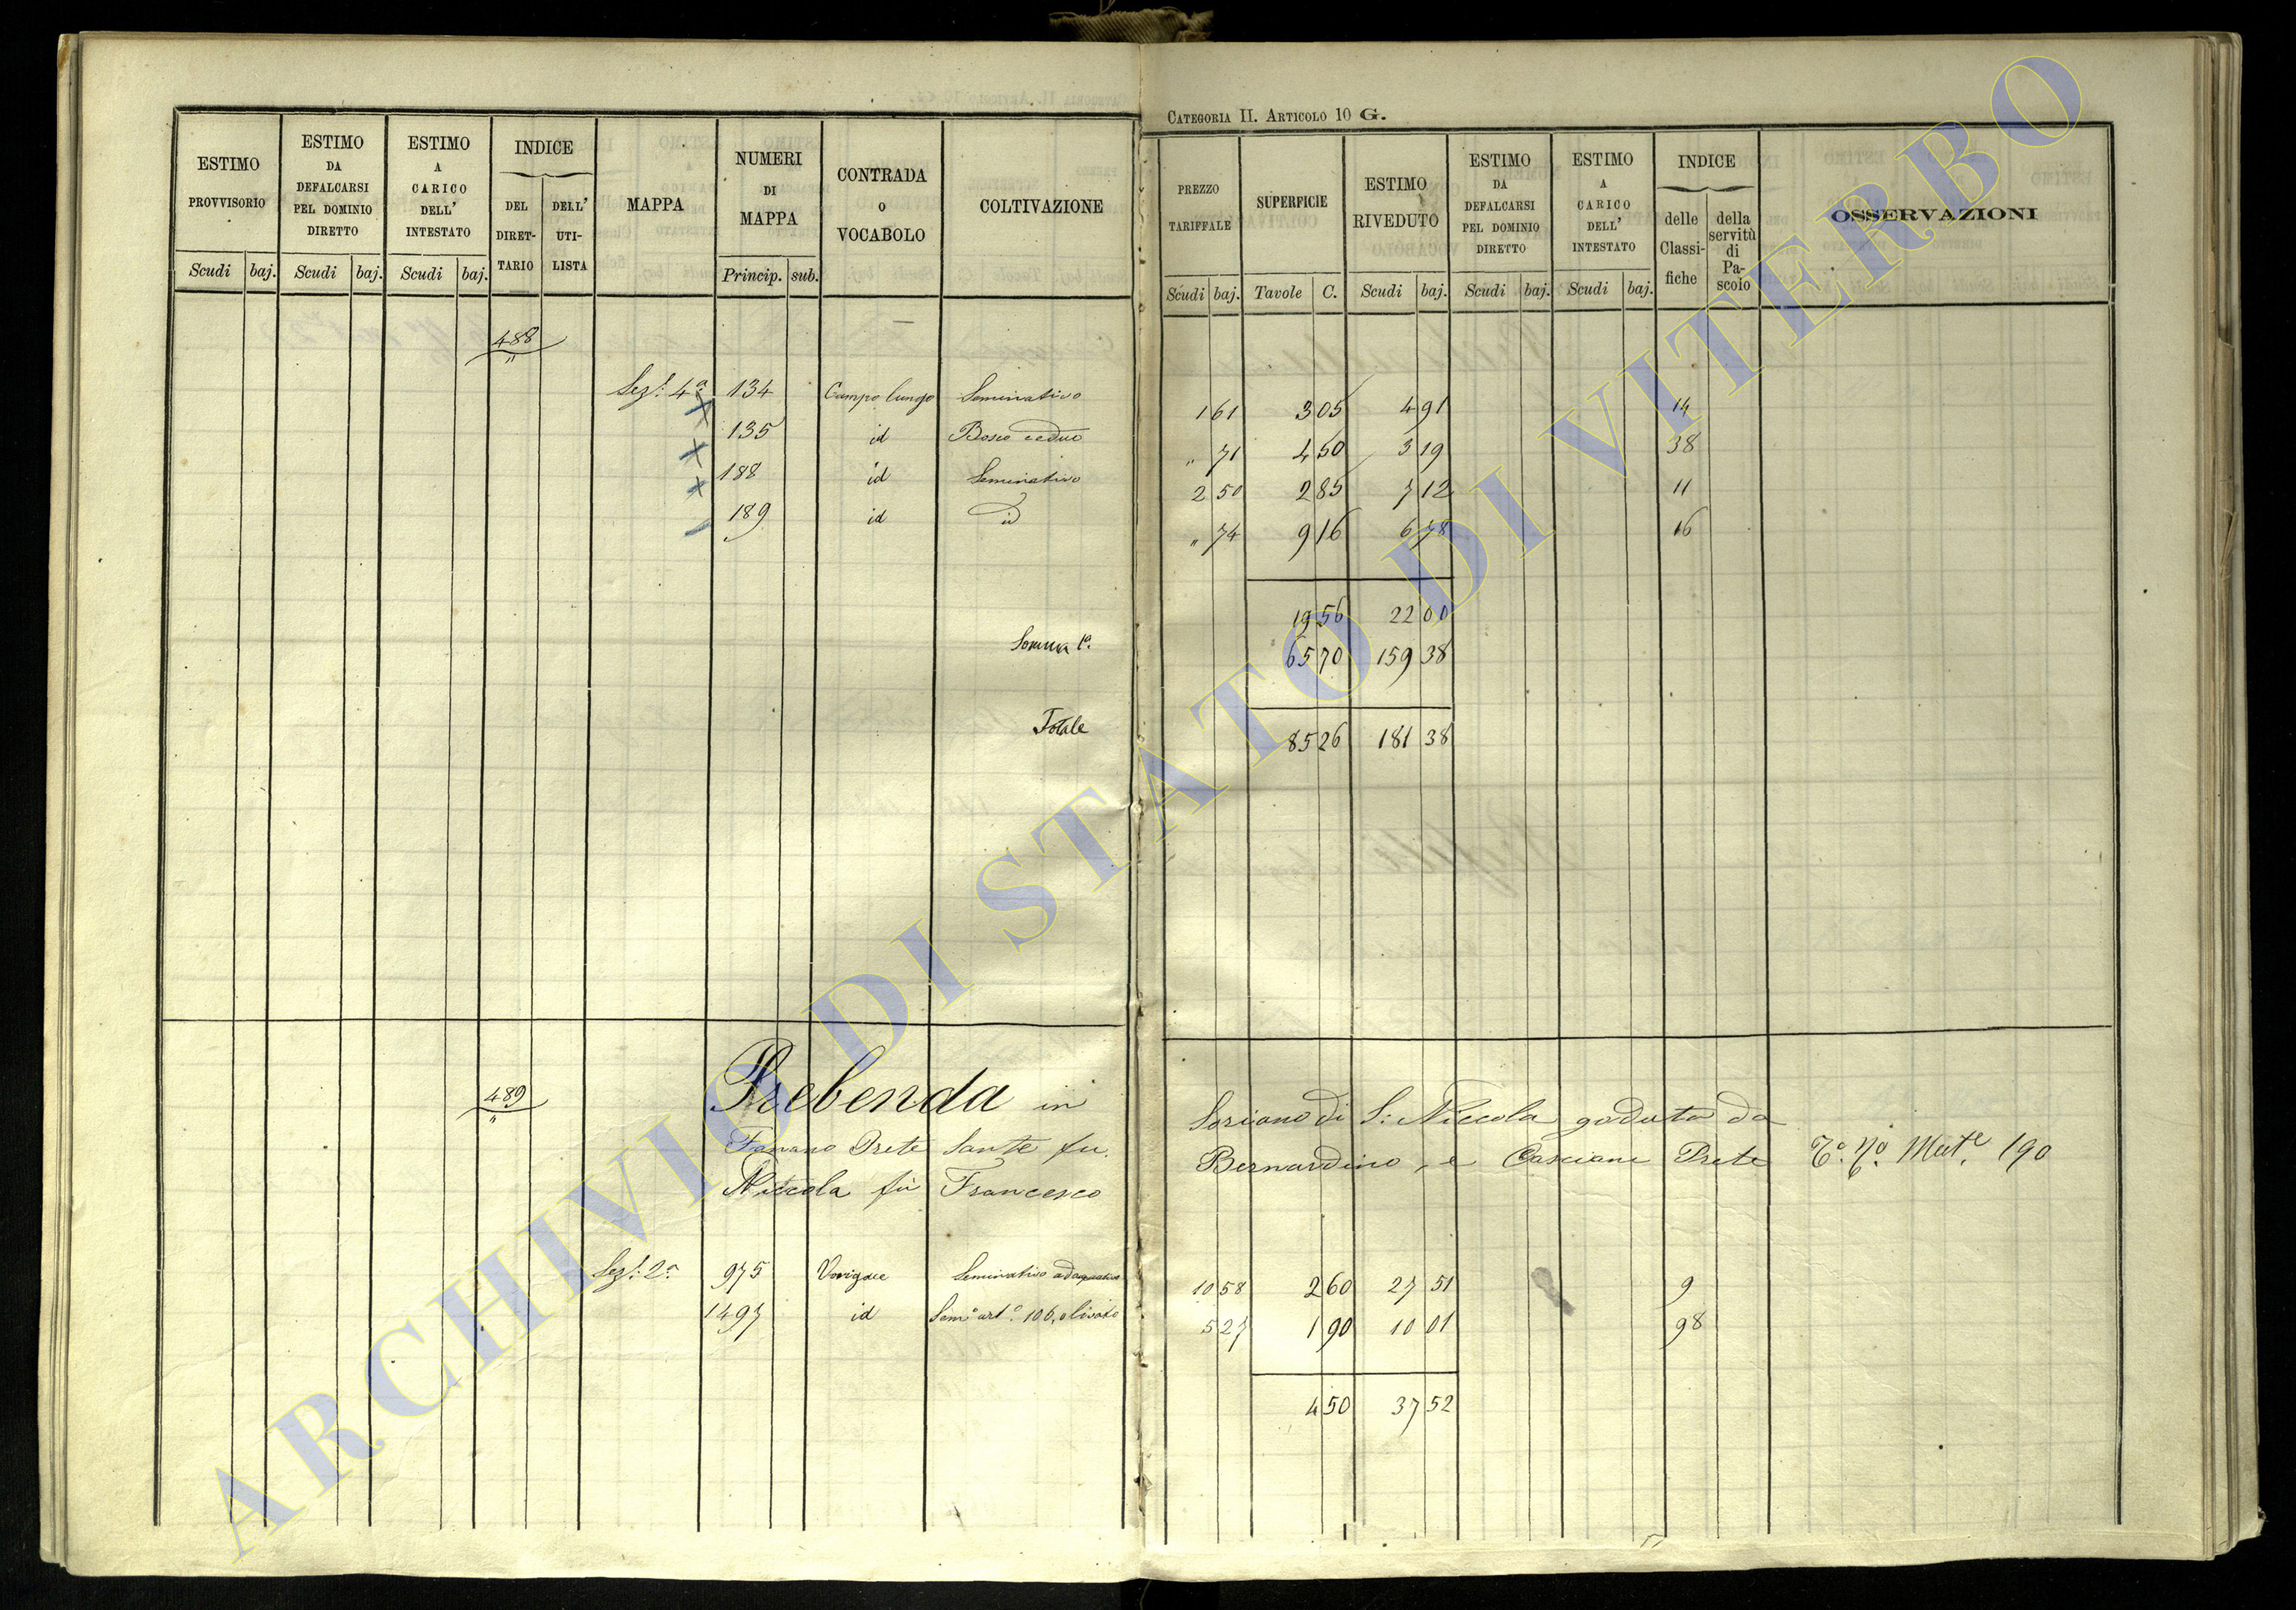 CATEGORIA II. ARTICOLO 10 G.
ESTIMO PROVVISORIO Scudi baj.
ESTIMO DA DEFALCARSI PEL DOMINIO DIRETTO Scudi baj.
ESTIMO A CARICO DELL' INTESTATO Scudi baj.
INDICE DEL DIRETTARIO DELL' UTILISTA
MAPPA
NUMERI DI MAPPA Princip. sub.
CONTRADA O VOCABOLO
COLTIVAZIONE
PREZZO TARIFFALE Scudi baj.
SUPERFICIE Tavole C.
ESTIMO RIVEDUTO Scudi baj.
ESTIMO DA DEFALCARSI PEL DOMINIO DIRETTO Scudi baj.
ESTIMO A CARICO DELL' INTESTATO Scudi baj.
INDICE delle Classifiche della servitù di Pascolo
OSSERVAZIONI
488
"
Sez: 4a 134 Campo lungo Seminativo 1 61 3 05 4 91 14
135 id Bosco ceduo " 71 4 50 3 19 38
188 id Seminativo 2 50 2 85 7 12 11
189 id id " 74 9 16 6 78 16
19 56 22 00
Somma 1a. 65 70 159 38
Totale 85 26 181 38
489
"
Prebenda in Soriano di S: Niccola goduta da
Prete Sante fu Bernardino, e Casciani Prete 190
Niccola fù Francesco
Sez: 2a 975 Seminativo adaquativo 10 58 2 60 27 51 9
1497 id Sem.o art.o 106, olivato 5 27 1 90 10 01 98
4 50 37 52
ARCHIVIO DI STATO DI VITERBO